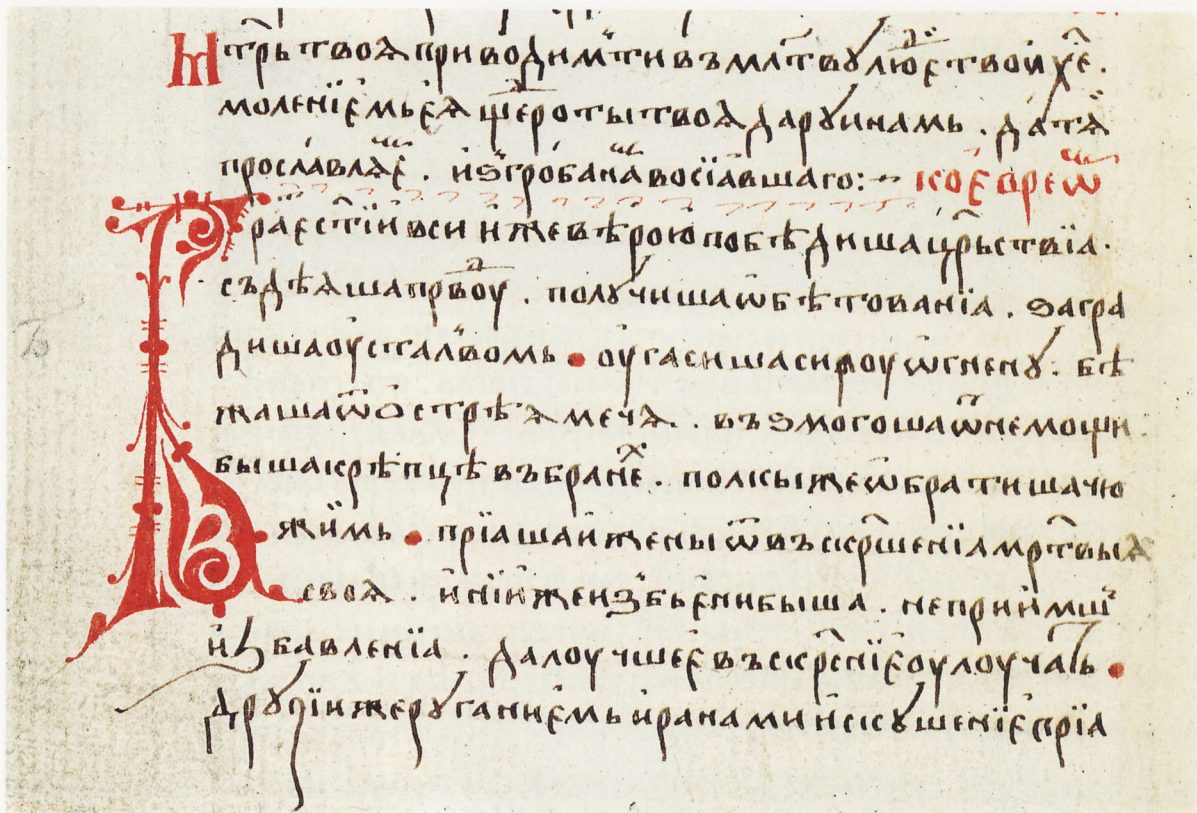 Мт҃рь твоя приводим ти в мл҃тву люд҇е твои хе҃.
моленїемь ея щедроты твоѧ даруи намь. да тѧ
прославлѧе. и ꙁ гроба на восїавшаго:~ к еѡ вреѡ
Брае ст҃їи вси иже вѣрою побѣдиша цр҃ьствїа.
съдѣяша правдоу. получиша ѡбѣтованїа. ꙁагра
диша оуста лвомь. оугасиша силоу ѡгнену. бѣ
жаша ѿ острѣя мечѧ. въꙁмогоша ѿ немощи
быша крѣпцѣ въ бране. полкы же ѡбратиша чю
жимь. прїаша и жены ѿ въскрⷭ҇шенїа мр҃твыѧ
своѧ. инїи же иꙁбьени быша. не приимш
иꙁбавленїа. да лоучшее въскрⷭ҇нїе оулоучать
друꙁїи же руганиемь и ранами искушенїе прїа